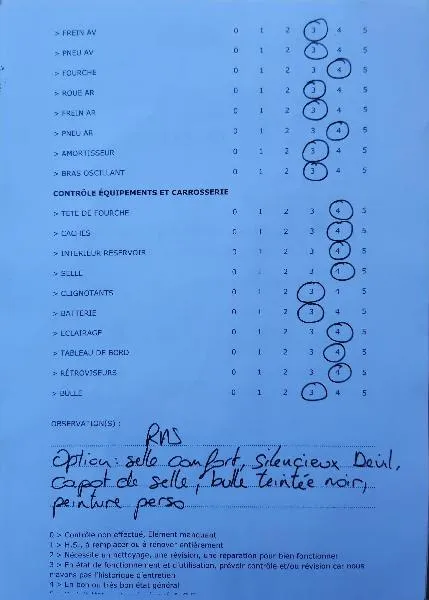 > FREIN AV 0 1 2 3 4 5
> PNEU AV 0 1 2 3 4 5
> FOURCHE 0 1 2 3 4 5
> ROUE AR 0 1 2 3 4 5
> FREIN AR 0 1 2 3 4 5
> PNEU AR 0 1 2 3 4 5
> AMORTISSEUR 0 1 2 3 4 5
> BRAS OSCILLANT 0 1 2 3 4 5
CONTRÔLE ÉQUIPEMENTS ET CARROSSERIE
> TETE DE FOURCHE 0 1 2 3 4 5
> CACHES 0 1 2 3 4 5
> INTERIEUR RESERVOIR 0 1 2 3 4 5
> SELLE 0 1 2 3 4 5
> CLIGNOTANTS 0 1 2 3 4 5
> BATTERIE 0 1 2 3 4 5
> ECLAIRAGE 0 1 2 3 4 5
> TABLEAU DE BORD 0 1 2 3 4 5
> RÉTROVISEURS 0 1 2 3 4 5
> BULLE 0 1 2 3 4 5
OBSERVATION(S) :
RAS
Option: selle confort, Silencieux Devil,
capot de selle, bulle teintée noir,
peinture perso
0 > Contrôle non effectué, Elément manquant
1 > H.S., à remplacer ou à rénover entièrement
2 > Nécessite un nettoyage, une révision, une réparation pour bien fonctionner
3 > En état de fonctionnement et d'utilisation, prévoir contrôle et/ou révision car nous
n'avons pas l'historique d'entretien
4 > En bon ou très bon état général